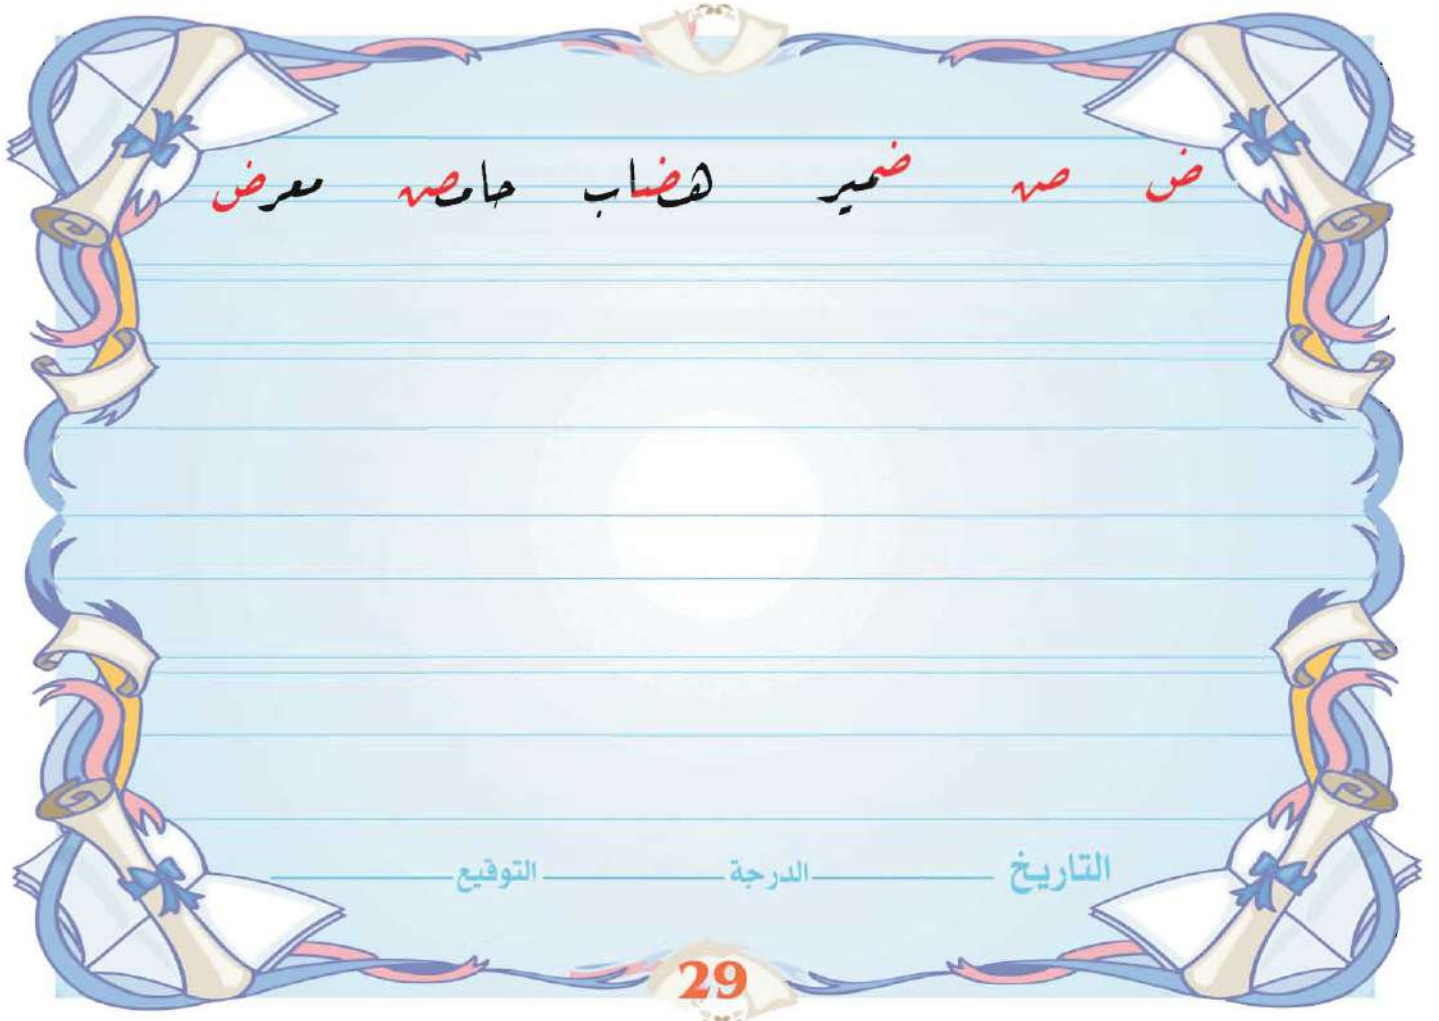 ض ض ضمير هضاب حامض معرض
التاريخ ــــــــ الدرجة ــــــــ التوقيع ــــــــ
29